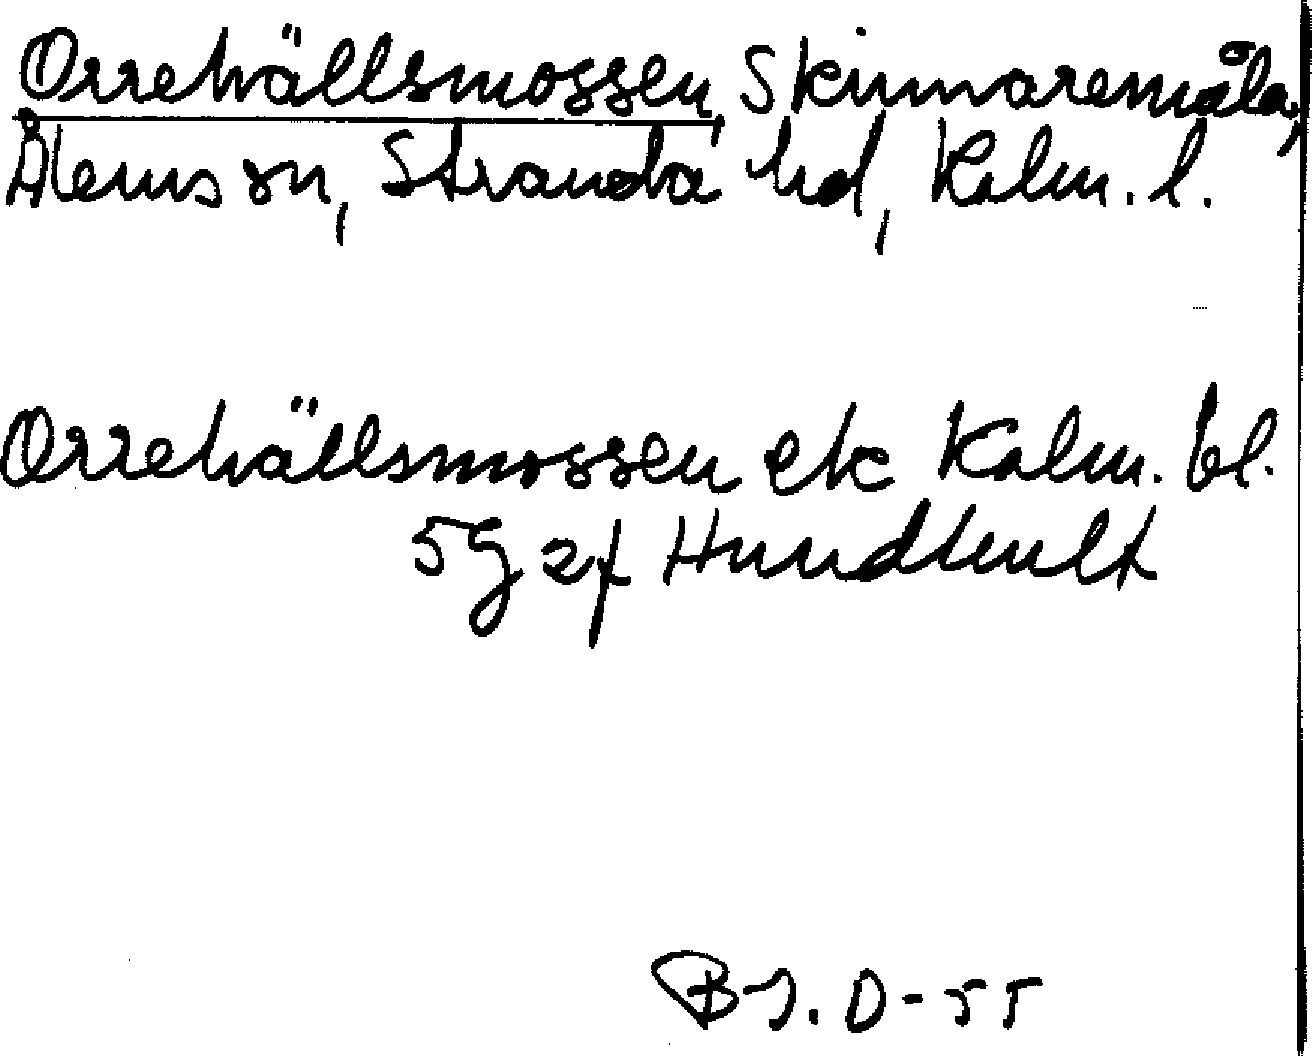 Orrehällsmossen, Skinnaremåla,
Ålems sn, Stranda hd, Kalm. l.
Orrehällsmossen ek Kalm. bl.
5G 2f Hundhult
BJ. D-55